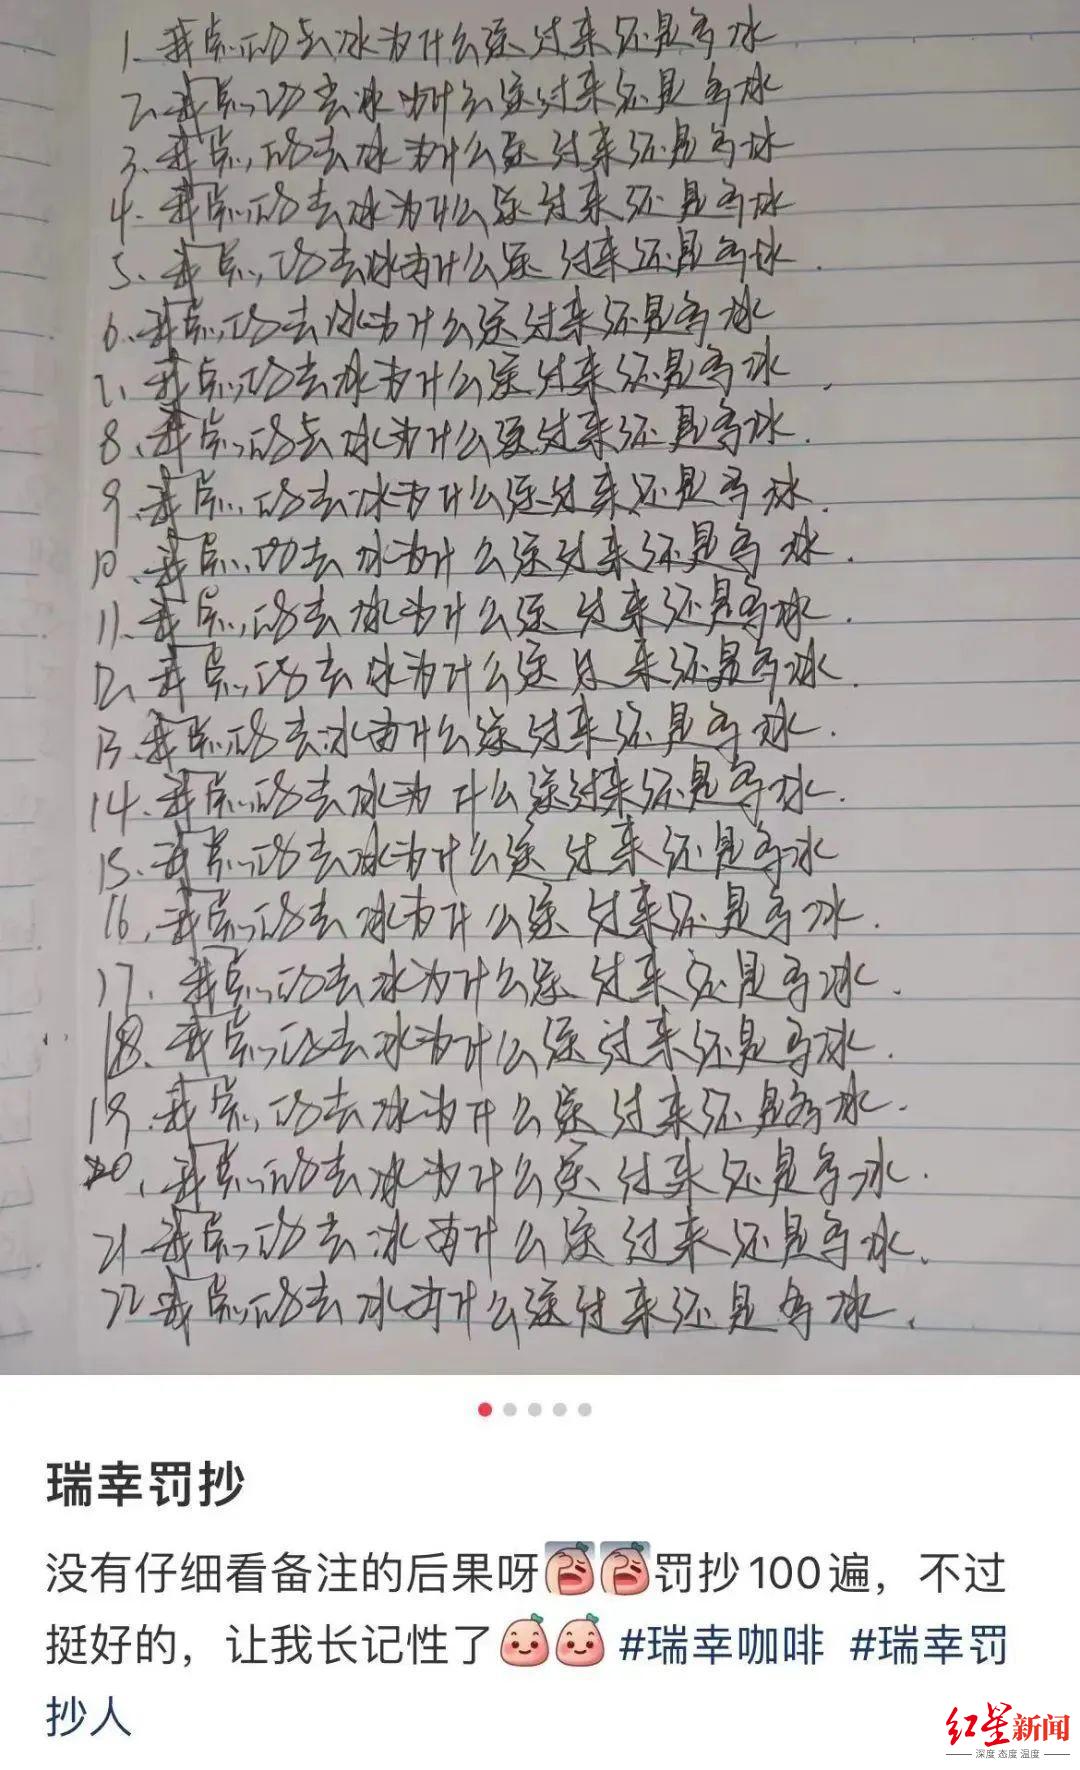 1、我点的去冰为什么送过来还是多冰
2、我点的去冰为什么送过来还是多冰
3、我点的去冰为什么送过来还是多冰
4、我点的去冰为什么送过来还是多冰
5、我点的去冰为什么送过来还是多冰.
6、我点的去冰为什么送过来还是多冰
7、我点的去冰为什么送过来还是多冰.
8、我点的去冰为什么送过来还是多冰.
9、我点的去冰为什么送过来还是多冰.
10、我点的去冰为什么送过来还是多冰.
11、我点的去冰为什么送过来还是多冰.
12、我点的去冰为什么送过来还是多冰.
13、我点的去冰为什么送过来还是多冰.
14、我点的去冰为什么送过来还是多冰.
15、我点的去冰为什么送过来还是多冰
16、我点的去冰为什么送过来还是多冰.
17、我点的去冰为什么送过来还是多冰.
18、我点的去冰为什么送过来还是多冰.
19、我点的去冰为什么送过来还是多冰.
20、我点的去冰为什么送过来还是多冰.
21、我点的去冰为什么送过来还是多冰.
22、我点的去冰为什么送过来还是多冰.
瑞幸罚抄
没有仔细看备注的后果呀罚抄100遍，不过
挺好的，让我长记性了 #瑞幸咖啡 #瑞幸罚
抄人
红星新闻
深度 态度 温度